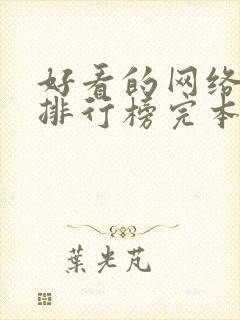 好看的网络
排行榜完本
葉光芃